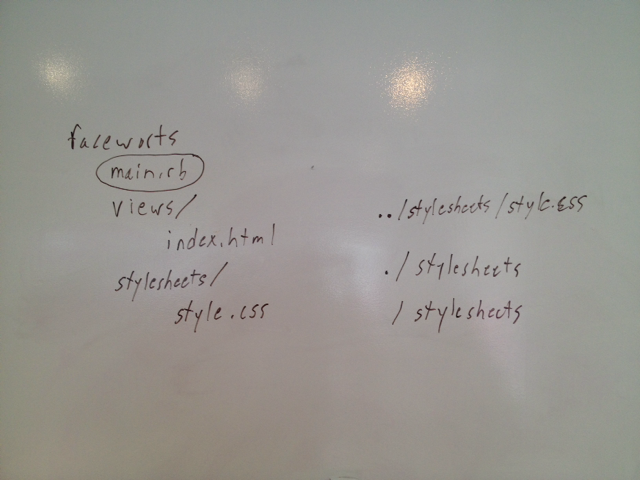 faceworts
main.rb
views/
index.html
stylesheets/
style.css
../stylesheets/style.css
./stylesheets
/stylesheets